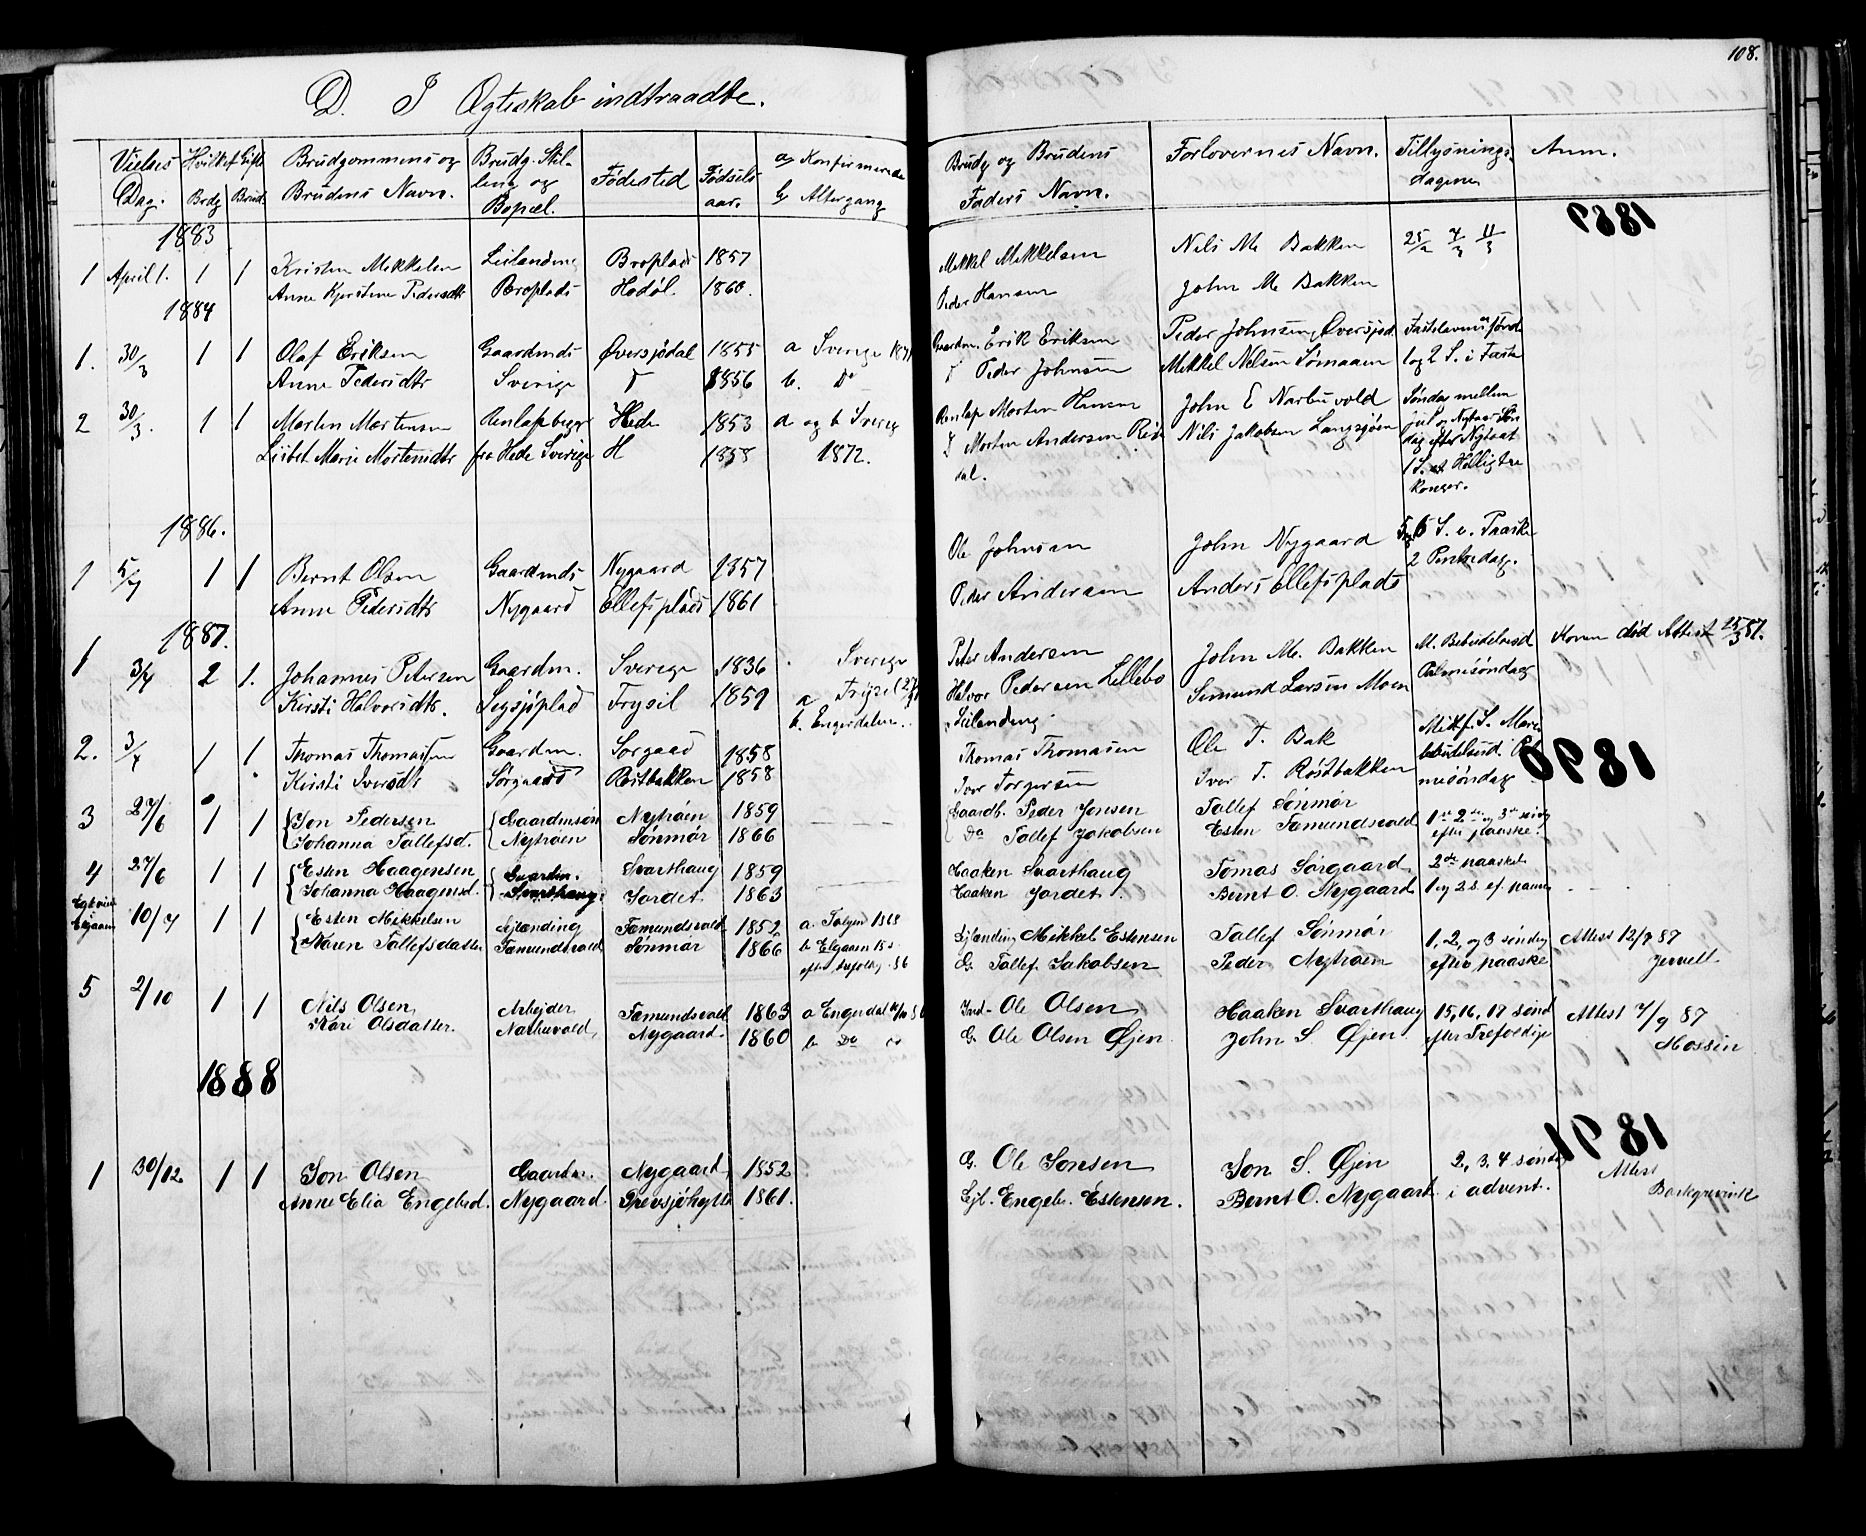 108.
D. I Ægteskab indtraadte.
Vielses Dag. | Hvilket Gifte Brdg. Brud. | Brudgommens og Brudens Navn. | Brudg. Stilling og Bopæl. | Fødested | Fødsels aar. | a, Konfirmerede b, Altergang | Brudg og Brudens Faders Navn. | Forlovernes Navn. | Tillysnings dagene | Anm.
1883
1 April 1. 1 1 Kristen Mikkelsen Leilænding Broplads 1857 Mikkel Mikkelsen Nils M. Bakken 25/2 4/3 11/3
Anne Kjerstine Pedersdtr Broplads Hodøl. 1860. Peder Hansen John M. Bakken
1884
1. 30/3 1 1 Olaf Eriksen Gaardmds Øversjødal 1855 a Sverige 1871 Gaardm. Erik Eriksen Peder Johnsen Øversjød. Fastelavnssønd
Anne Pedersdtr Sverige 1856 b. Do Peder Johnsen Mikkel Nelsen Sømaaen 1 og 2 S. i Faste
2 30/3. 1 1 Morten Mortensen Renlapbygr Hede 1853 a og b Sverig Renlap Morten Hansen John E Narbuvold Søndag mellem
Lisbet Marie Mortensdtr fra Hede Sverige H 1858 1872. Morten Andersen Rødal. Nils Jakobsen Langsjøen Jul og Nytaar Søndag efter Nytaar
1 S. Helligtre Konger.
1886.
1 5/4 1 1 Bernt Olsen Gaardmds Nygaard 1857 Ole Johnsen John Nygaard 5, 6 S. e. Paaske
Anne Pedersdtr Nygaard Ellefsplads 1861 Peder Andersen Anders Ellefsplads 2 Pintsedag.
1887.
1 3/4 2 1. Johannes Petersen Gaardm. Sverige 1836 Sverige Peter Andersen John M. Bakken M. Bebudelsesd Konen død Attest 25/3 87.
Kirsti Halvorsdtr. Segsjøplad Frysil 1859 a Trysil b. Engerdalen. Halvor Pedersen Lillebo Leilænding. Semund Larsen Moen Palmesøndag
2. 3/4 1 1 Thomas Thomassen Gaardm. Sorgaad 1858 Thomas Thomasen Ole T. Bak Midf. S. Marie
Kirsti Iversdtr Sørgaard Røstbakken 1858 Iver Torgersen Iver T. Røstbakken bebudelsesd. Palmesøndag
3 27/6 1 1 Jon Pedersen Gaardmsøn Nytrøen 1859 Gaardb. Peder Jonsen Tollef Sønmør 1ste 2den og 3die søndag
Johanna Tollefsd. Nytrøen Sønmør 1866 Do Tollef Jakobsen Esten Tæmundsvold efter paaske.
4 27/6 1 1 Esten Haagensen Gaardm. Svarthaug 1859 Haaken Svarthaug Tomas Sørgaard 2den paaskd.
Johanna Haagensd. Svarthaug. Jordet 1863 Haaken Jordet. Bernt O. Nygaard 1 og 2 s. ef. paaske
Elgaaen 10/7 1 1 Esten Mikkelsen Lejlænding Tæmundsvold 1852 a. Tolgen 1868 Lejlænding Mikkel Estensen Tollef Sønmør 1, 2, og 3 søndag Attest 12/7 87
Karen Tollefsdatter Tæmundsvold Sønmør 1866 b Elgaaen 15 s. efter trefoldig. 86 G. Tollef Jakobsen Peder Nytrøen efter paaske Jervell
5 2/10 1 1 Nils Olsen Arbejder Tæmundsvold 1863 a Engerdal Ind- Ole Olsen Haaken Svarthaug 15, 16, 17 sønd Attest 7/9 87
Kari Olsdatter. Narbuvold, Nygaard. 1860 b Do G. Ole Olsen Øjen John S. Øjen efter Trefoldigh Mossin
1888
1 30/12. 1 1 Jon Olsen Gaardm. Nygaard 1852 G. Ole Jonsen Jon S. Øjen 2, 3, 4 søndag Attest
Anne Elia Engebrd. Nygaard. Drevsjøhytte 1861. Lejl. Engebr. Estensen. Bernt O. Nygaard. i advent. Barkgrevink
1889
1890
1891